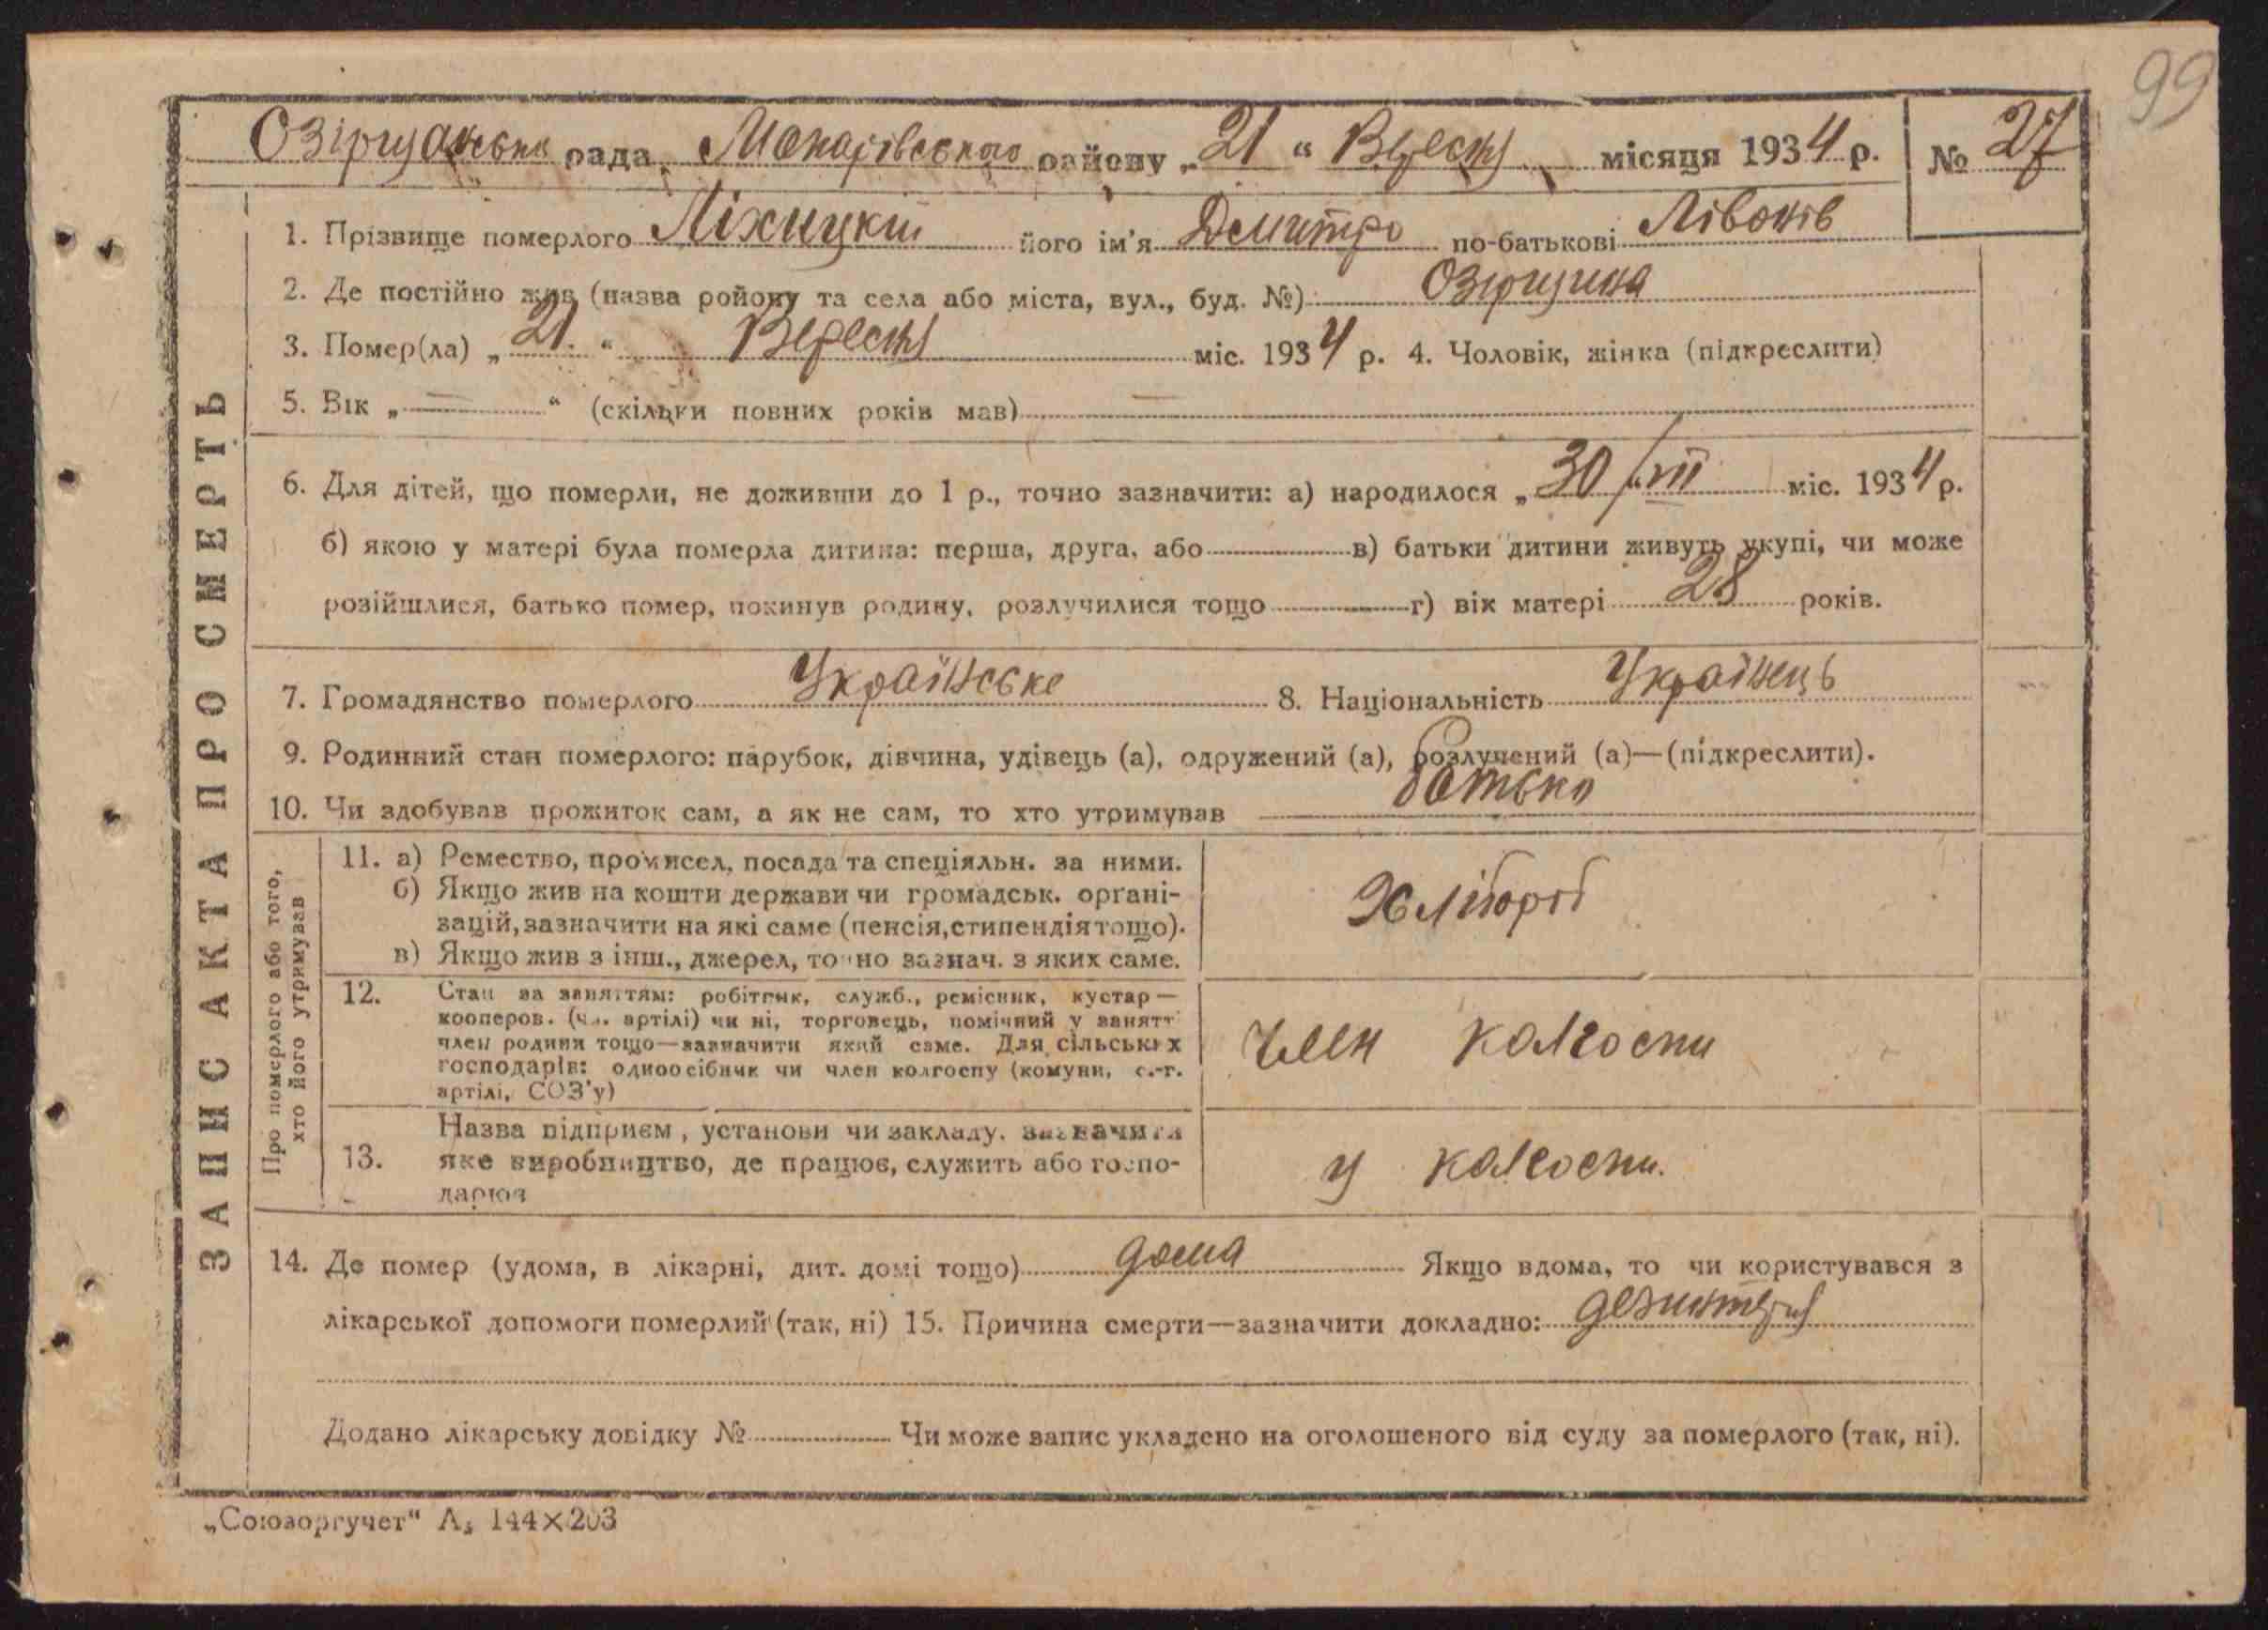 99
Озірщанська рада Макарівського району „21“ Вересня місяця 1934 р. № 27
1. Прізвище померлого Ліхицкий його ім'я Дмитро по-батькові
2. Де постійно жив (назва ройону та села або міста, вул., буд. №) Озірщина
3. Помер(ла) „21“ Вересня міс. 1934 р. 4. Чоловік, жінка (підкреслити)
5. Вік „—“ (скільки повних років мав) —
6. Для дітей, що померли, не доживши до 1 р., точно зазначити: а) народилося „30/“ VII міс. 1934 р.
б) якою у матері була померла дитина: перша, друга, або в) батьки дитини живуть укупі, чи може
розійшлися, батько помер, покинув родину, розлучилися тощо г) вік матері 28 років.
7. Громадянство померлого Українське 8. Національність Українець
9. Родинний стан померлого: парубок, дівчина, удівець (а), одружений (а), розлучений (а)—(підкреслити).
10. Чи здобував прожиток сам, а як не сам, то хто утримував батько
ЗАПИС АКТА ПРО СМЕРТЬ
Про померлого або того,
хто його утримував
11. а) Ремество, промисел, посада та спеціяльн. за ними.
б) Якщо жив на кошти держави чи громадськ. органі-
зацій, зазначити на які саме (пенсія, стипендія тощо).
в) Якщо жив з інш., джерел, точно зазнач. з яких саме.
Хлібороб
12. Стан за заняттям: робітник, служб., ремісник, кустар —
кооперов. (чл. артілі) чи ні, торговець, помічний у занятт
член родини тощо—зазначити який саме. Для сільських
господарів: одноосібник чи член колгоспу (комуни, с.-г.
артілі, СОЗ'у)
член колгоспи
13. Назва підприєм, установи чи закладу. зазначити
яке виробництво, де працює, служить або госпо-
дарює
у колгоспи.
14. Де помер (удома, в лікарні, дит. домі тощо) дома Якщо вдома, то чи користувався з
лікарської допомоги померлий (так, ні) 15. Причина смерти—зазначити докладно: дезинтерия
Додано лікарську довідку № Чи може запис укладено на оголошеного від суду за померлого (так, ні).
„Союзоргучет“ А₅ 144×203